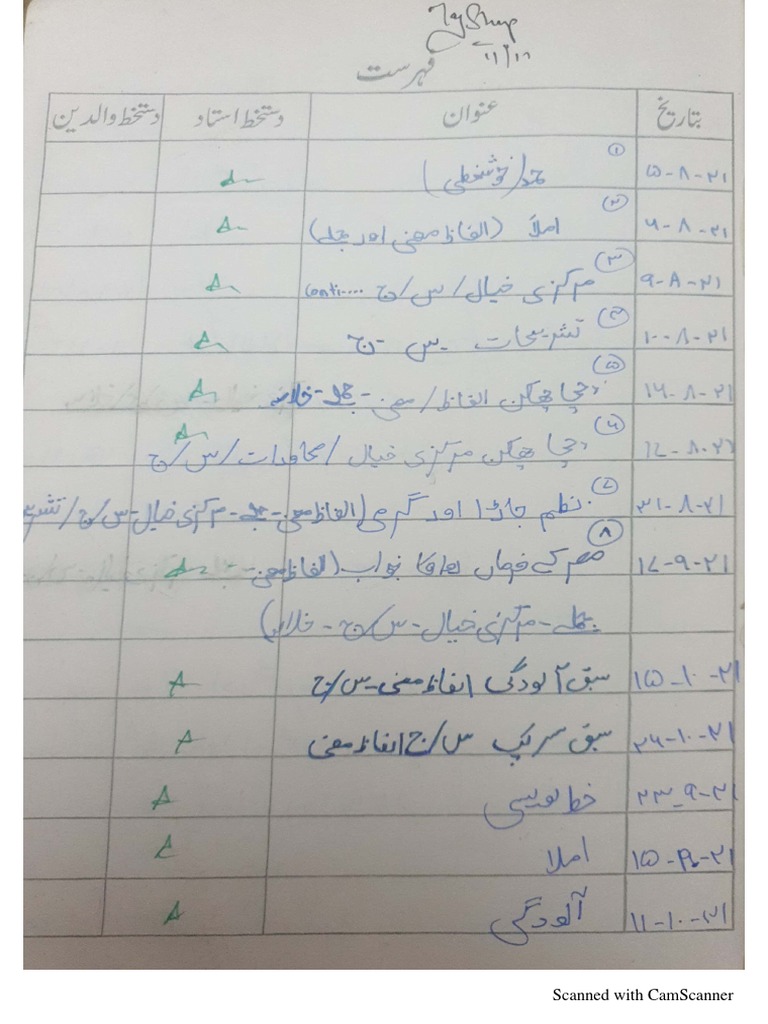 ۱۱/۱۲
فہرست
بتاریخ عنوان دستخط استاد دستخط والدین
۵-۸-۲۱ ① حمد (خوشخطی)
۶-۸-۲۱ ② املا (الفاظ معنی اور جملے)
۹-۸-۲۱ ③ مرکزی خیال/س/ج conti....
۱۰-۸-۲۱ ④ تشریحات - س - ج
۱۶-۸-۲۱ ⑤ چچا چھکن الفاظ/معنی - جملے - خلاصہ
۱۷-۸-۲۱ ⑥ چچا چھکن مرکزی خیال/محاورات/س/ج
۳۱-۸-۲۱ ⑦ نظم جاڑا اور گرمی (الفاظ معنی - جملے - مرکزی خیال - س/ج/
۱۷-۹-۲۱ ⑧ کے خواب (الفاظ معنی -
جملے - مرکزی خیال - س/ج - خلاصہ)
۱۵-۱۰-۲۱ سبق آلودگی الفاظ معنی - س/ج
۲۶-۱۰-۲۱ سبق س/ج الفاظ معنی
۲۳-۹-۲۱ خط نویسی
املا
۱۱-۱۰-۲۱ آلودگی
Scanned with CamScanner